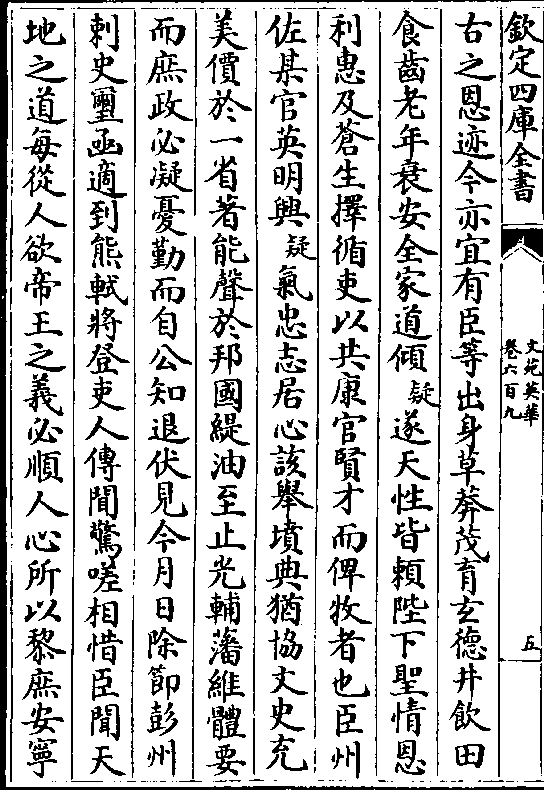 欽定四庫全書
文苑英華
卷六百九
五
古之恩迹今亦宜有臣等出身草莽茂育玄德井飲田
食齒老年衰安全家道傾疑遂天性皆頼陛下聖情恩
利惠及蒼生擇循吏以共康官賢才而俾牧者也臣州
佐某官英明興疑氣忠志居心該舉墳典猶協文史充
美價於一省著能聲於邦國緹油至止光輔藩維體要
而庶政必凝憂勤而自公知退伏見今月日除節彭州
刺史璽函適到熊軾將登吏人傳聞驚嗟相惜臣聞天
地之道每從人欲帝王之義必順人心所以黎庶安寧